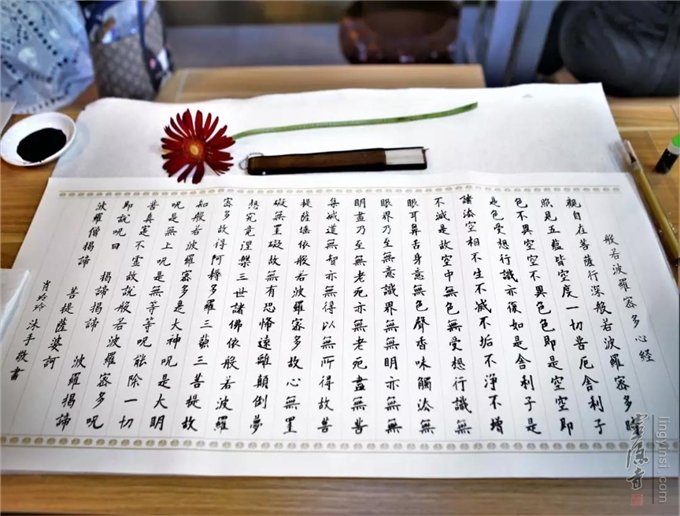 般若波羅密多心經
觀自在菩薩行深般若波羅密多時
照見五蘊皆空度一切苦厄舍利子
色不異空空不異色色即是空空即
是色受想行識亦復如是舍利子是
諸法空相不生不滅不垢不淨不增
不減是故空中無色無受想行識無
眼耳鼻舌身意無色聲香味觸法無
眼界乃至無意識界無無明亦無無
明盡乃至無老死亦無老死盡無苦
集滅道無智亦無得以無所得故菩
提薩埵依般若波羅密多故心無罣
礙無罣礙故無有恐怖遠離顛倒夢
想究竟涅槃三世諸佛依般若波羅
密多故得阿耨多羅三藐三菩提故
知般若波羅密多是大神咒是大明
咒是無上咒是無等等咒能除一切
苦真實不虛故說般若波羅密多咒
即說咒曰 揭諦揭諦 波羅揭諦
波羅僧揭諦 菩提薩婆訶
肖玲玲 沐手敬書
靈隱寺
lingyinsi.com